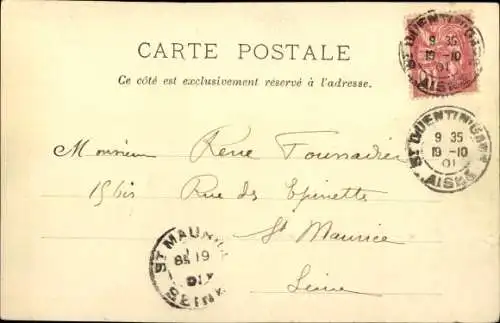 CARTE POSTALE
Ce côté est exclusivement réservé à l'adresse.
ST QUENTIN GARE
9 35
19 -10
01
AISNE
ST QUENTIN GARE
9 35
19 -10
01
AISNE
Monsieur René Toussadier
15 bis Rue des Epinettes
St Maurice
Seine
ST MAURICE
8E 19
01
SEINE